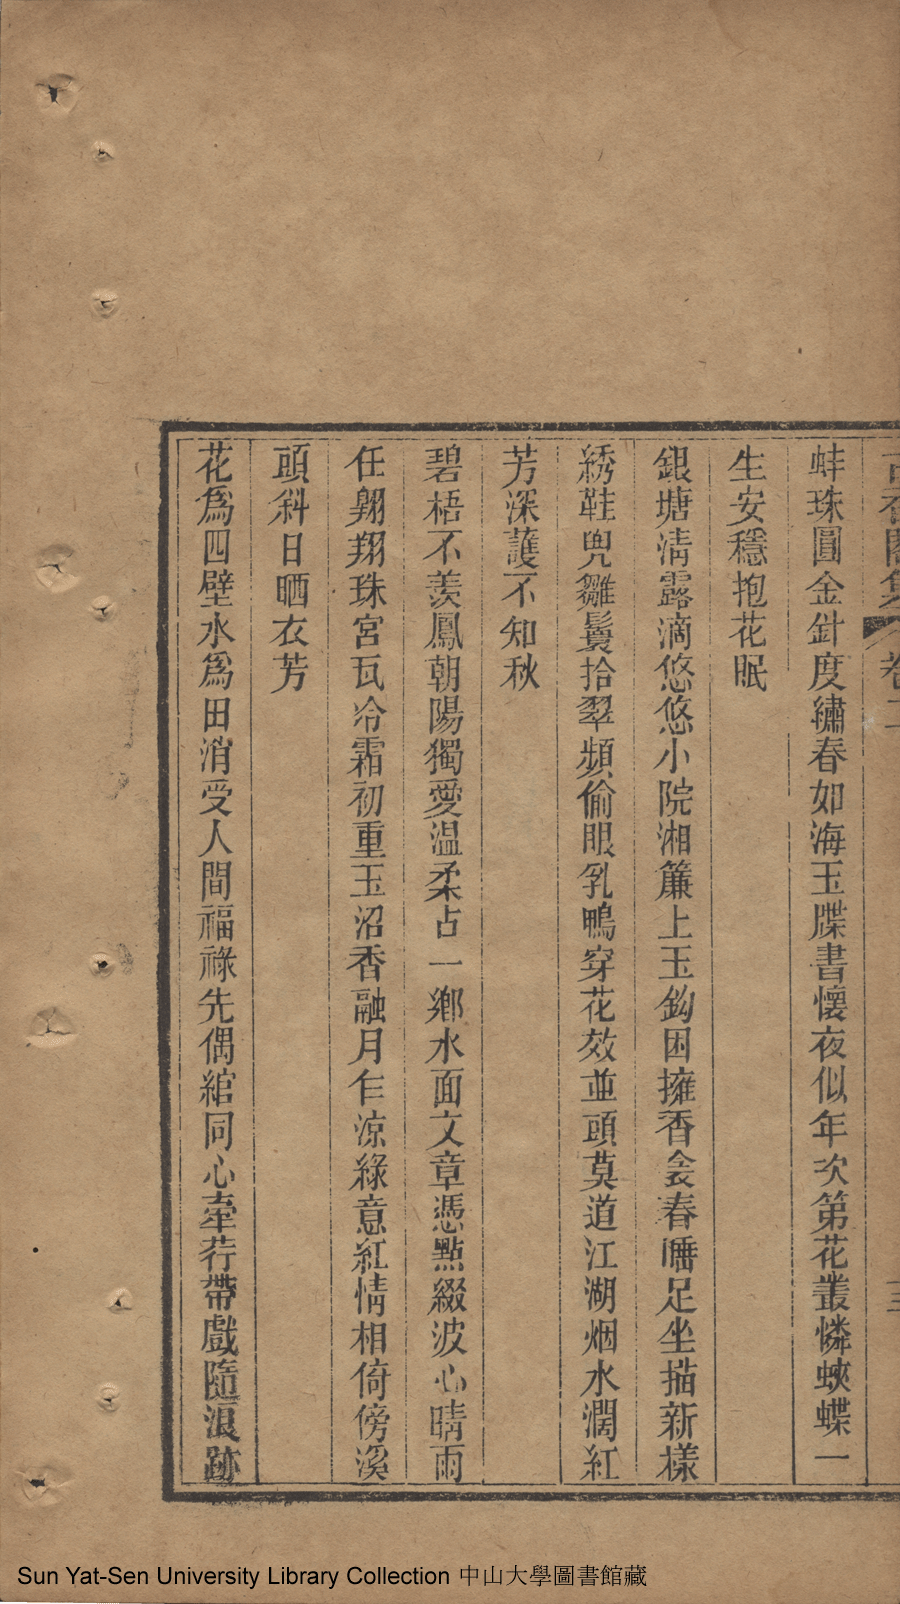 卷二
蚌珠圓金針度繡春如海玉牒書懷夜似年次第花叢憐蛺蝶一
生安穩抱花眠
銀塘清露滴悠悠小院湘簾上玉鈎困擁香衾春睡足坐描新樣
綉鞋兜雛鬟拾翠頻偷眼乳鴨穿花效並頭莫道江湖烟水濶紅
芳深護不知秋
碧梧不羨鳳朝陽獨愛温柔占一鄉水面文章憑點綴波心晴雨
任翺翔珠宮瓦冷霜初重玉沼香融月乍涼綠意紅情相倚傍溪
頭斜日晒衣芳
花爲四壁水爲田消受人間福祿先偶綰同心牽荇帶戲隨浪跡
Sun Yat-Sen University Library Collection 中山大學圖書館藏